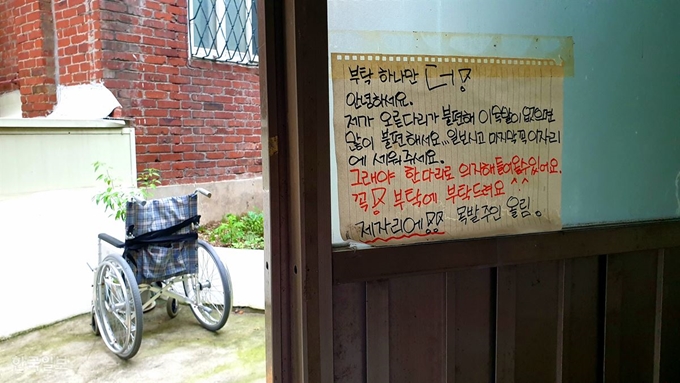 부탁 하나만 더!
안녕하세요.
제가 오른다리가 불편해 이 목발이 없으면
많이 불편해요... 일보시고 마지막 꼭 이 자리
에 세워주세요.
그래야 한다리로 의지해 들어올 수 있어요.
꼭! 부탁에 부탁드려요 ^^
제자리에!! 목발주인 올림.